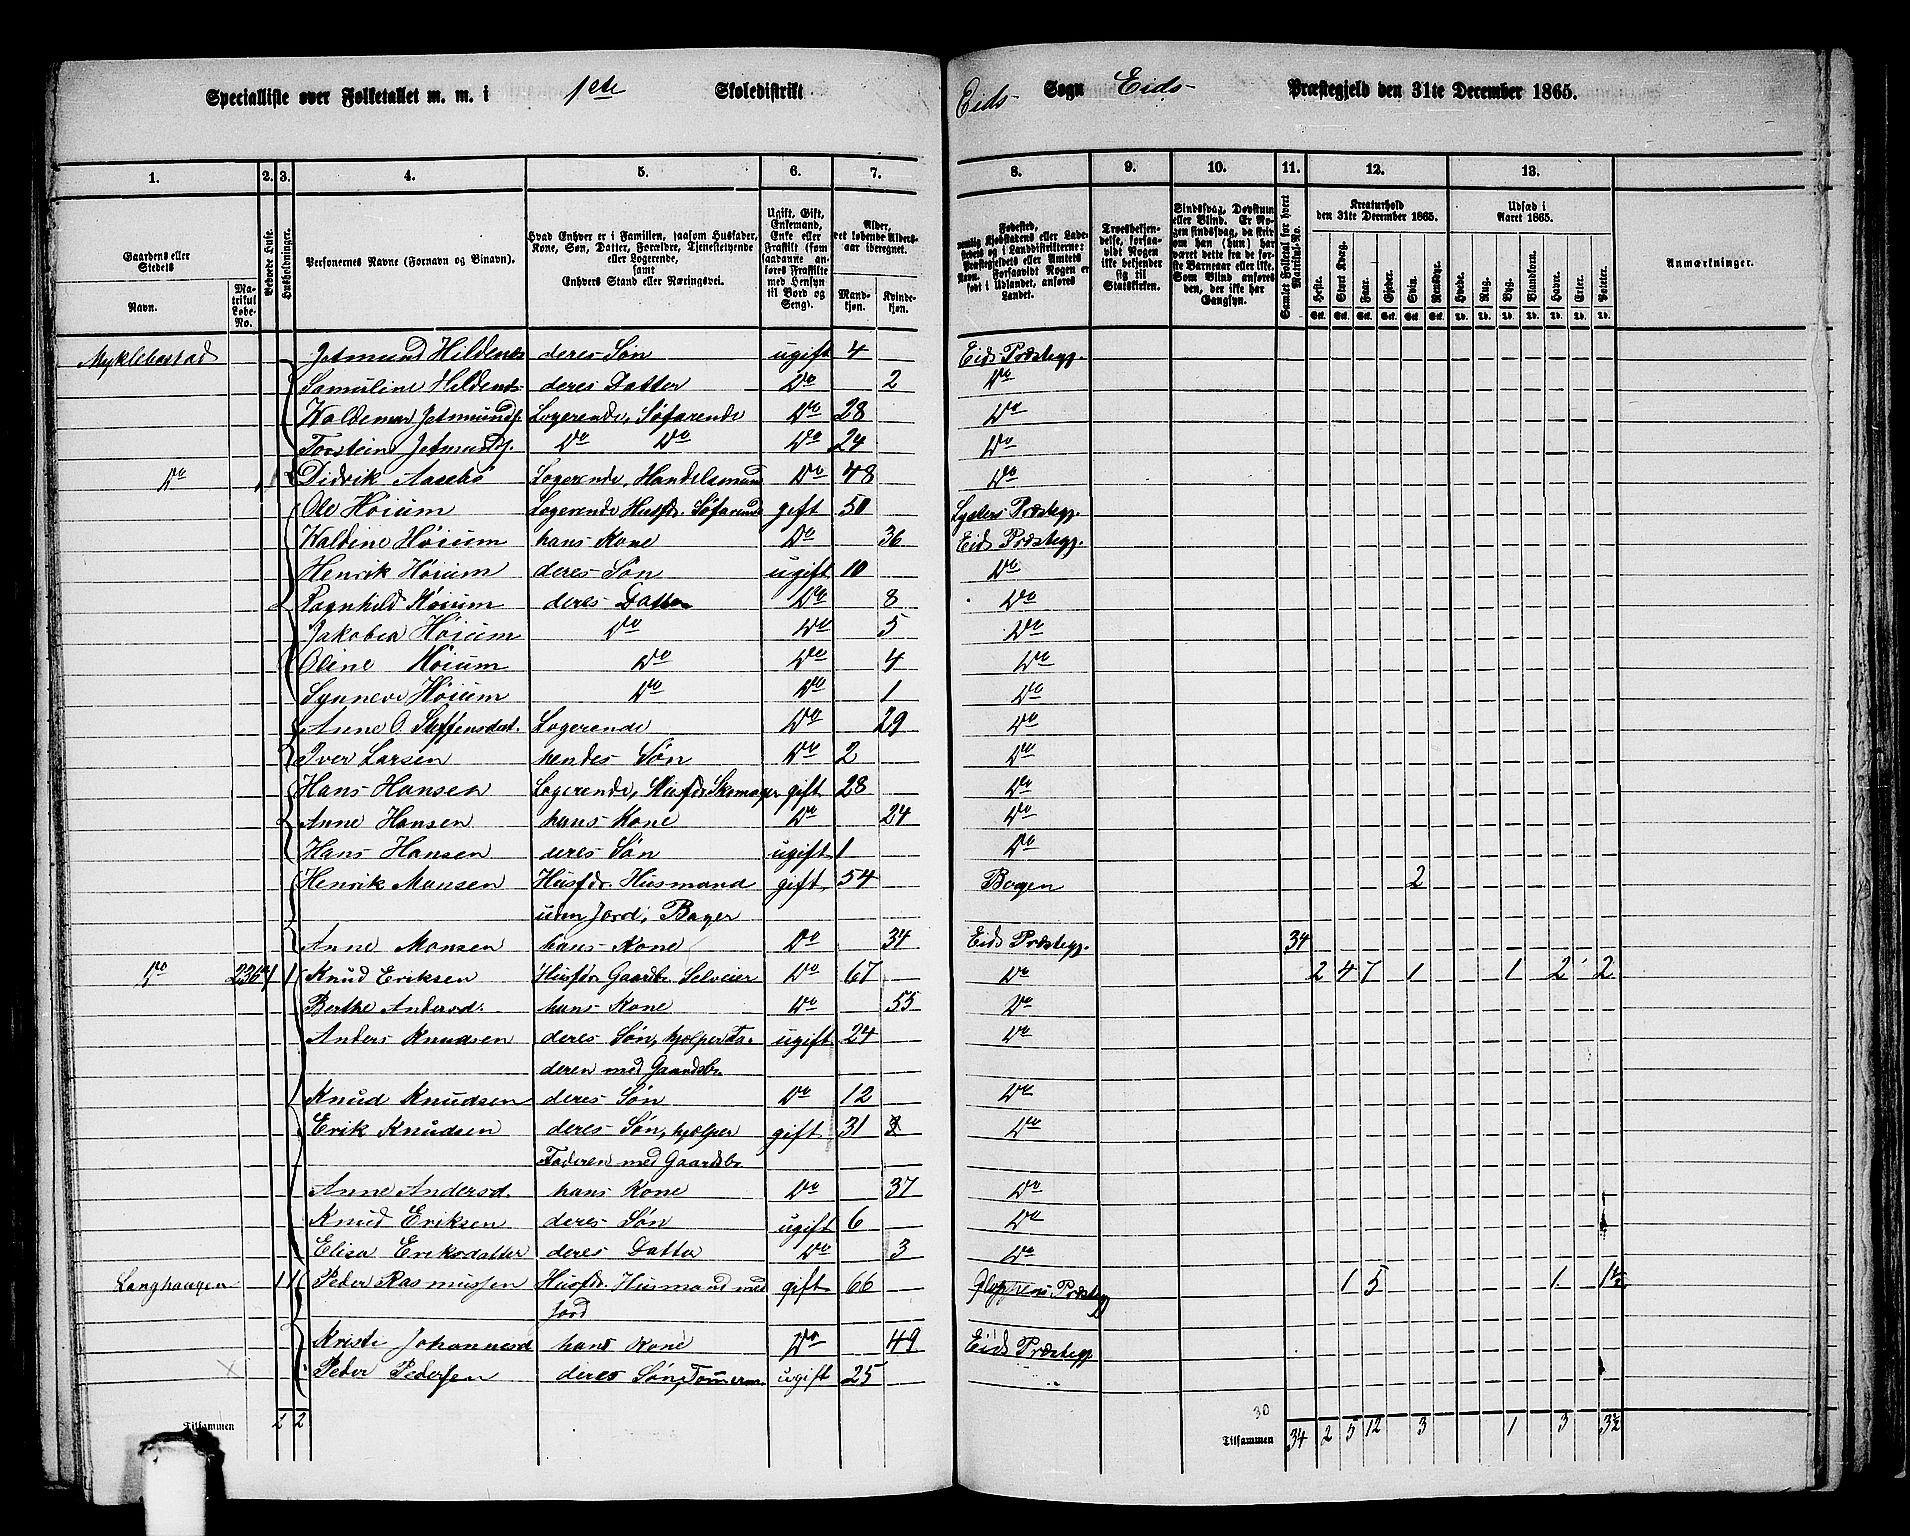 Specialliste over Folketallet m. m. i 1ste Skoledistrikt Eids Sogn Eids Præstegjeld den 31te December 1865.
1. 2. 3. 4. 5. 6. 7. 8. 9. 10. 11. 12. 13.
Gaardens eller Stedets
Navn. Matrikul Løbe-No.
Beboede Huse.
Husholdninger.
Personernes Navne (Fornavn og Binavn).
Hvad Enhver er i Familien, saasom Husfader, Kone, Søn, Datter, Forældre, Tjenestetyende eller Logerende, samt Enhvers Stand eller Næringsvei.
Ugift, Gift, Enkemand, Enke eller Fraskilt (som saadanne anføres Fraskilte med Hensyn til Bord og Seng).
Alder, det løbende Alders-aar iberegnet.
Mandkjøn. Kvindekjøn.
Fødested, nemlig Kjøbstadens eller Ladestedets og i Landdistrikterne: Præstegjeldets eller Amtets Navn. Forsaavidt Nogen er født i Udlandet, anføres Landet.
Troesbekjendelse, forsaavidt Nogen ikke bekjender sig til Statskirken.
Sindssvag, Døvstum eller Blind. Er Nogen sindssvag, da skrives om han (hun) har været dette fra de første Barneaar eller ikke. Som Blind anføres den, der ikke har Gangsyn.
Samlet Folketal for hvert Matrikul-No.
Kreaturhold den 31te December 1865.
Heste. Stort Kvæg. Faar. Gjeder. Svin. Rensdyr.
Udsæd i Aaret 1865.
Hvede. Rug. Byg. Blandkorn. Havre. Erter. Poteter.
Anmærkninger.
Myklebostad Jetmund Hildenes deres Søn ugift 4 Eids Præstegj.
Samuline Hildenes deres Datter Do 2 Do
Waldemar Jetmunds. Logerende, Søfarende Do 28 Do
Torstein Jetmunds. Do Do Do 24 Do
Do Didrik Aasebø Logerende, Handelsmand Do 48 Do
Ole Høium Logerende Husfdr. Søfarende gift 50 Lysters Præstegj.
Waldine Høium hans Kone Do 36 Eids Præstegj.
Henrik Høium deres Søn ugift 10 Do
Ragnhild Høium deres Datter Do 8 Do
Jakobea Høium Do Do 5 Do
Oline Høium Do Do 4 Do
Synneve Høium Do Do 1 Do
Anne O. Steffensdat. Logerende Do 29 Do
Iver Larsen hendes Søn Do 2 Do
Hans Hansen Logerende, Husfdr Skomager gift 28 Do
Anne Hansen hans Kone Do 24 Do
Hans Hansen deres Søn ugift 1 Do
Henrik Monsen Husfdr. Husmand gift 54 Bergen 2
uden Jord, Bager
Anne Monsen hans Kone Do 34 Eids Præstegj. 34
Do 236 1 1 Knud Eriksen Husfdr Gaardbr Selveier Do 67 Do 2 4 7 1 1 2 2
Berthe Andersd. hans Kone Do 55 Do
Anders Knudsen deres Søn, hjælper Fa- ugift 24 Do
deren med Gaardsbr.
Knud Knudsen deres Søn Do 12 Do
Erik Knudsen deres Søn, hjælper gift 31 Do
Faderen med Gaardsbr.
Anne Andersd. hans Kone Do 37 Do
Knud Eriksen deres Søn ugift 6 Do
Elisa Eriksdatter deres Datter Do 3 Do
Langhaugen 1 1 Peder Rasmussen Husfdr. Husmand med gift 66 Gloppens Præstegj 1 5 1 1½
Jord
Kristi Johannesd hans Kone Do 49 Eids Præstegj.
Peder Pedersen deres Søn, Tømerm. ugift 25 "
30
Tilsammen 2 2 Tilsammen 34 2 5 12 3 1 3 3½